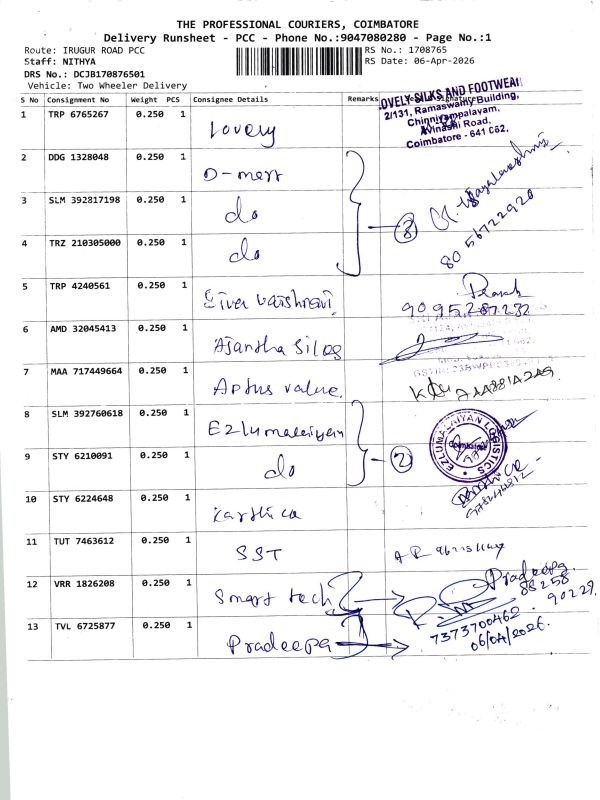 THE PROFESSIONAL COURIERS, COIMBATORE
Delivery Runsheet - PCC - Phone No.:9047080280 - Page No.:1
Route: IRUGUR ROAD PCC
RS No.: 1708765
Staff: NITHYA
RS Date: 06-Apr-2026
DRS No.: DCJB170876501
Vehicle: Two Wheeler Delivery
S No Consignment No Weight PCS Consignee Details Remarks
LOVELY SILKS AND FOOTWEAR
2/131, Ramaswamy Building,
Chinniyampalayam,
Avinashi Road,
Coimbatore - 641 062.
1 TRP 6765267 0.250 1 Lovely
2 DDG 1328048 0.250 1 D-mart
3 SLM 392817198 0.250 1 do
3
8056722920
4 TRZ 210305000 0.250 1 do
5 TRP 4240561 0.250 1 Siva Vaishnavi
9095287232
6 AMD 32045413 0.250 1 Ajantha Silks
7 MAA 717449664 0.250 1 Aptus value.
8 SLM 392760618 0.250 1 Ezlumalaiyan
EZLUMALAIYAN LOGISTICS
Coimbatore
9 STY 6210091 0.250 1 do
2
10 STY 6224648 0.250 1 Karthica
11 TUT 7463612 0.250 1 SST
12 VRR 1826208 0.250 1 Smart tech
Pradeepa
88258
90229
7373700462
06/04/2026.
13 TVL 6725877 0.250 1 Pradeepa